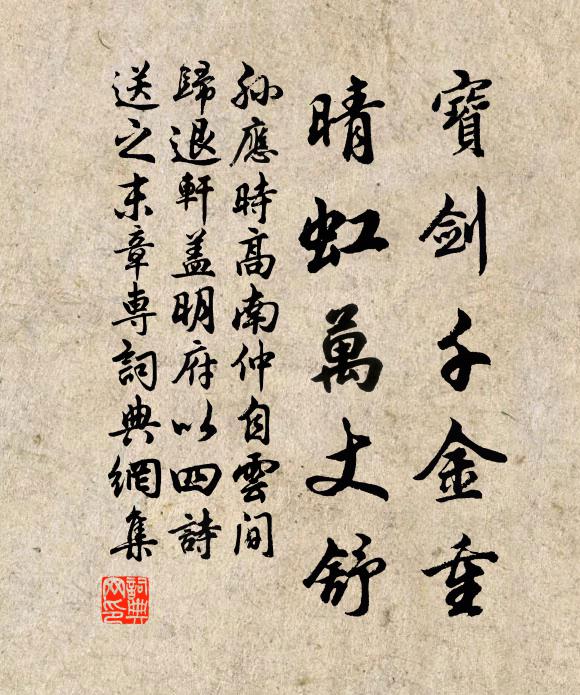 寶劍千金重
晴虹萬丈舒
孫應時高南仲自雲間
歸退軒蓋明府以四詩
送之末章専詞典網集
詞典網印